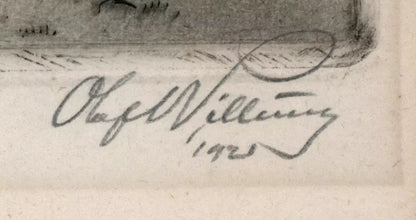 Olaf Willums
1925